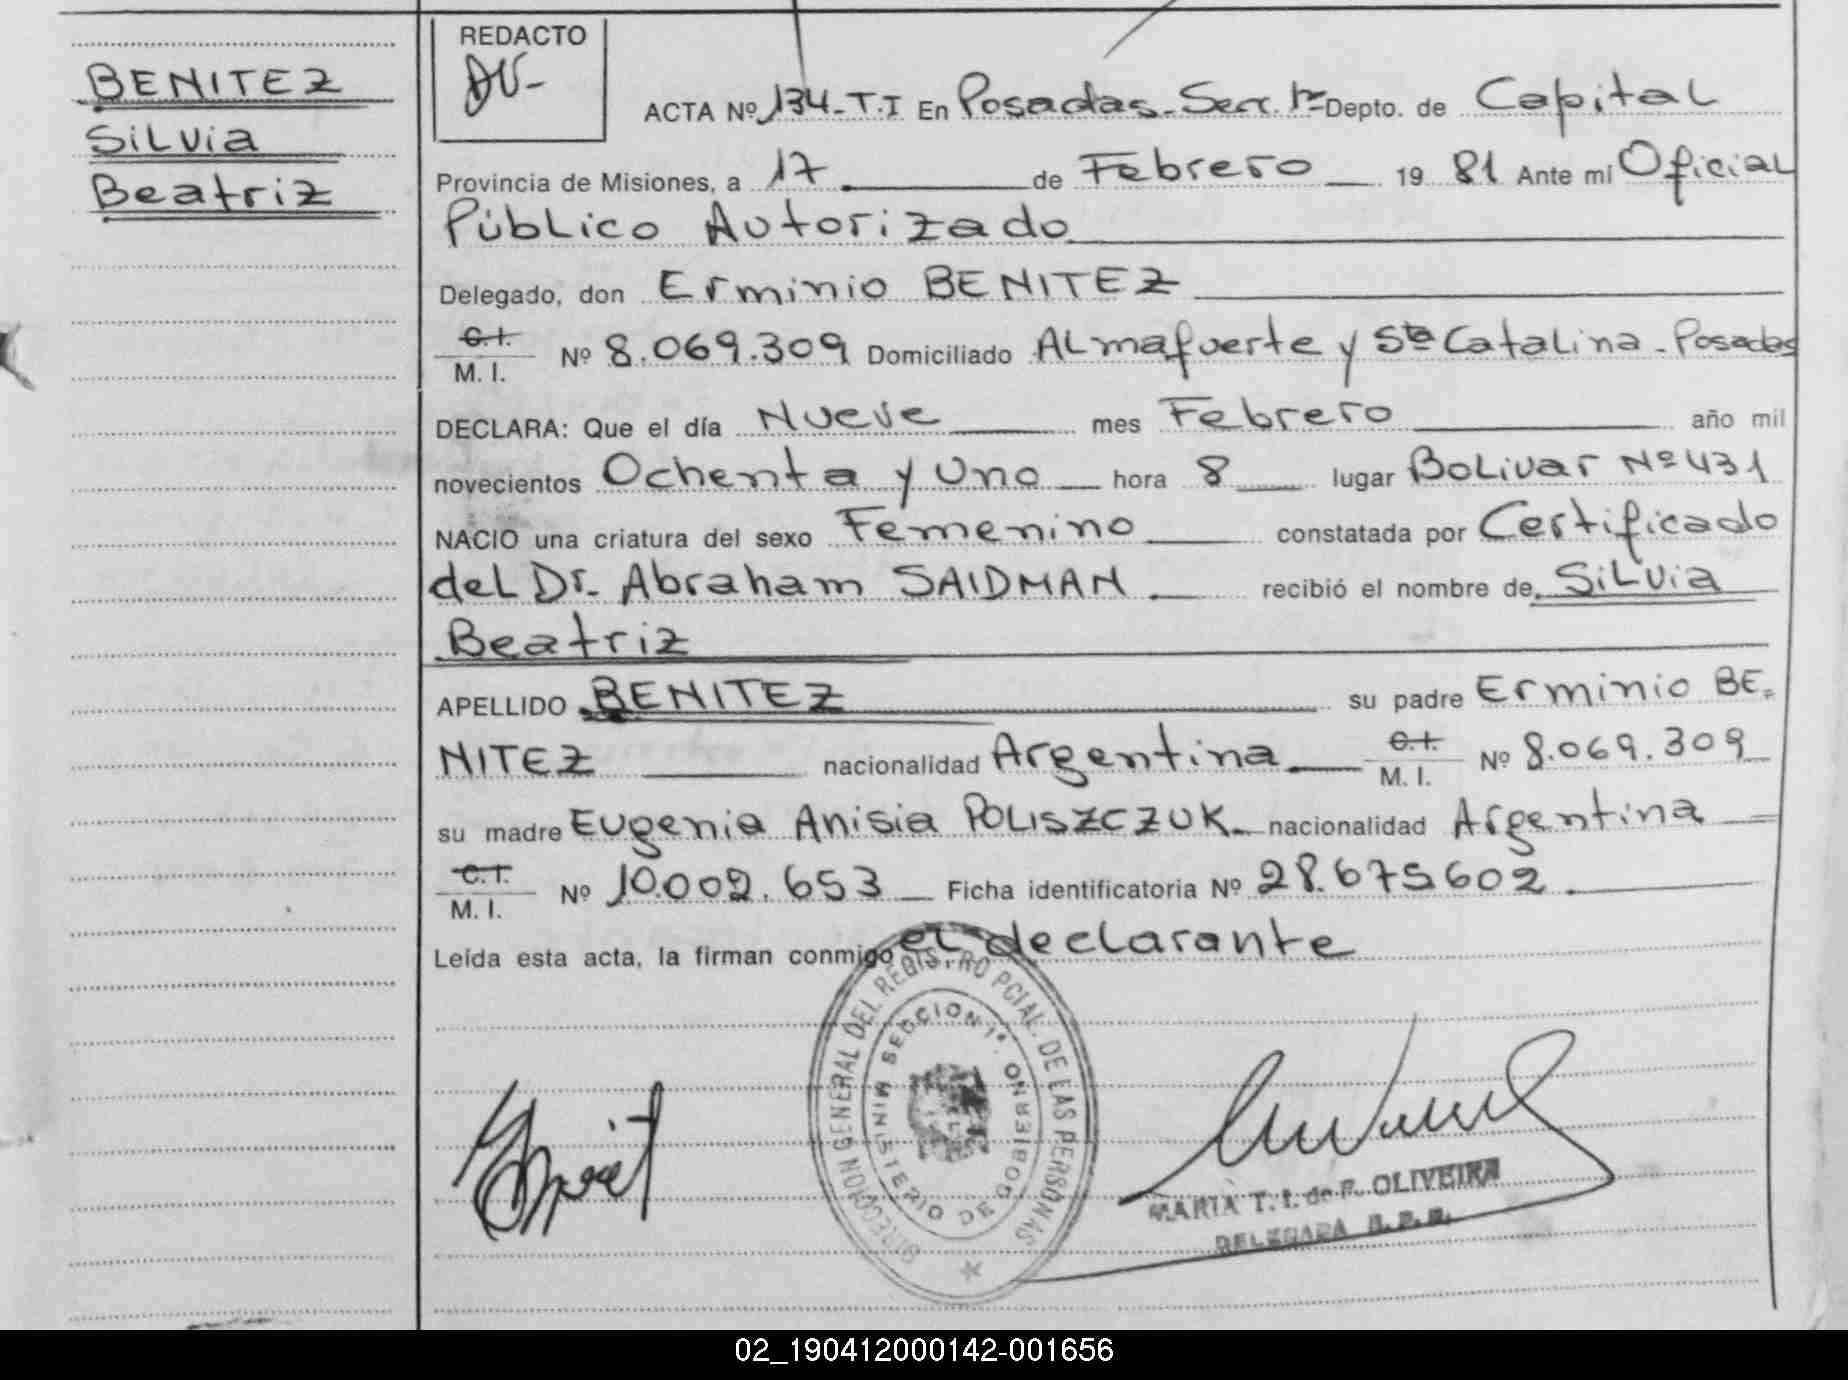 BENITEZ
Silvia
Beatriz
REDACTO
ACTA Nº 134-T.I En Posadas-Secc. 1ra Depto. de Capital
Provincia de Misiones, a 17 de Febrero 19 81 Ante mi Oficial
Público Autorizado
Delegado, don Erminio BENITEZ
C.I.
M. I. Nº 8.069.309 Domiciliado Almafuerte y Sta Catalina - Posadas
DECLARA: Que el día Nueve mes Febrero año mil
novecientos Ochenta y Uno hora 8 lugar Bolivar Nº 431
NACIO una criatura del sexo Femenino constatada por Certificado
del Dr. Abraham SAIDMAN recibió el nombre de Silvia
Beatriz
APELLIDO BENITEZ su padre Erminio BE=
NITEZ nacionalidad Argentina C.I. M. I. Nº 8.069.309
su madre Eugenia Anisia POLISZCZUK nacionalidad Argentina
C.I.
M. I. Nº 10.002.653 Ficha identificatoria Nº 28.675602
Leída esta acta, la firman conmigo el declarante
DIRECCION GENERAL DEL REGISTRO PCIAL. DE LAS PERSONAS
SECCION 1ª.
MINISTERIO DE GOBIERNO
MARIA T. I. de P. OLIVEIRA
DELEGADA R. P. P.
02_190412000142-001656